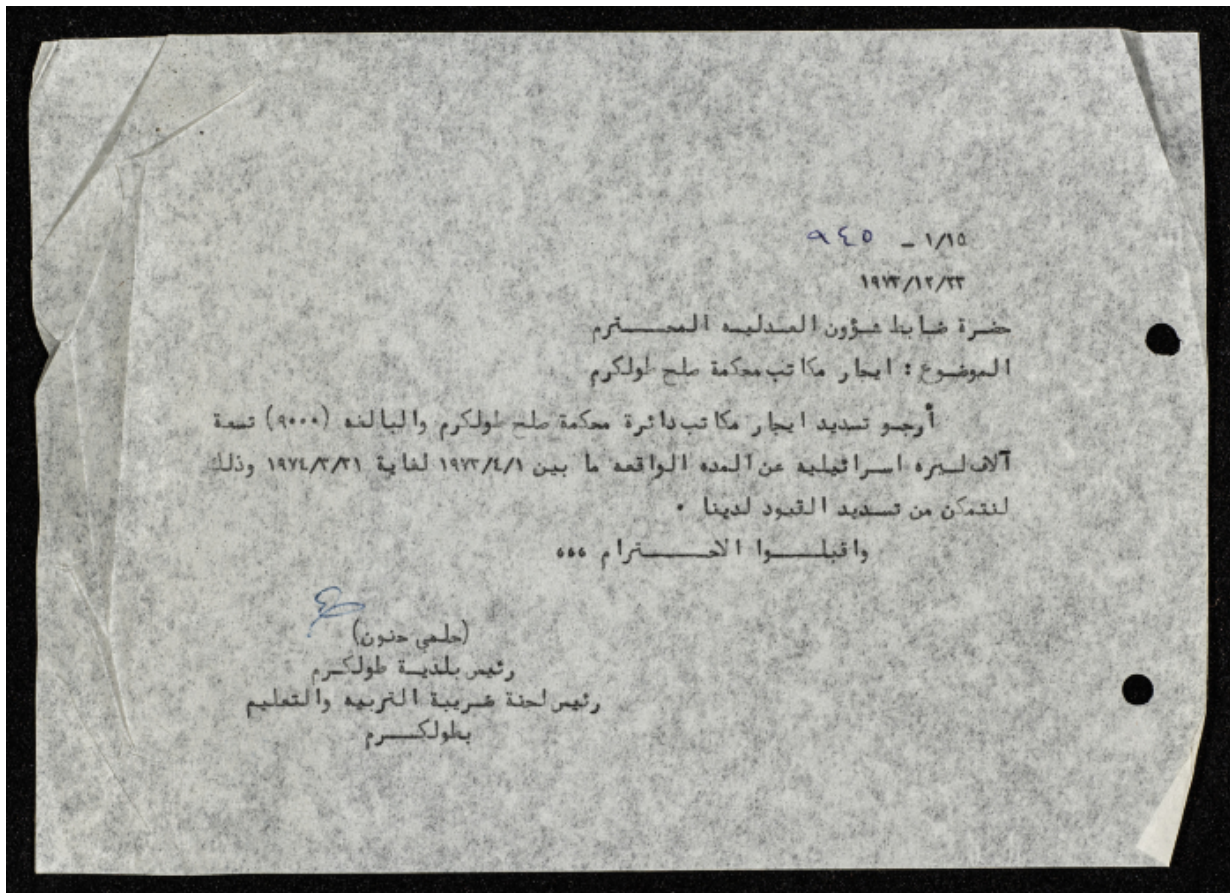 ١/١٥ – ٩٤٥
١٩٧٣/١٢/٢٣
حضرة ضابط شؤون العدليه المحـــترم
الموضوع : ايجار مكاتب محكمة صلح طولكرم
أرجو تسديد ايجار مكاتب دائرة محكمة صلح طولكرم والبالغه (٩٠٠٠) تسعة
آلاف لـيره اسرائيليه عن المده الواقعه ما بين ١٩٧٣/٤/١ لغاية ١٩٧٤/٣/٣١ وذلك
لنتمكن من تسديد القيود لدينا ٠
واقبلـــوا الاحـــــترام ،،،
(حلمي حنون)
رئيس بلديـة طولكـرم
رئيس لجنة ضريبة التربيه والتعليم
بطولكـــرم